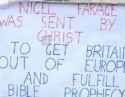 NIGEL FARAGE
WAS SENT BY
CHRIST
TO GET BRITAIN
OUT OF EUROPE
AND FULFILL
BIBLE PROPHECY